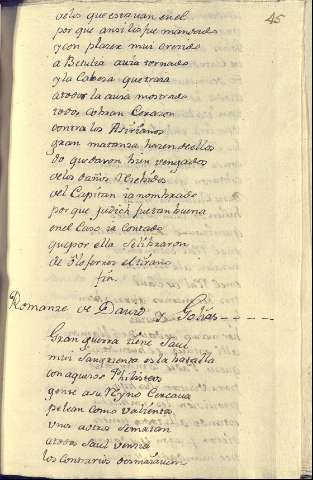 45
de los que estavan en el
por que ansi les fue mandado
y con plazer mui crecido
a Betulia avia tornado
y la Cabesa que traia
a todos la avia mostrado
todos cobran Corazon
contra los Asirianos
gran matanza hazen de ellos
do quedaron bien vengados
de los daños Recibidos
del Capitan ia nombrado
por que Judich fue tan buena
en el Caso ia contado
que por ella se libraron
de Olofernes el tirano
fin.
Romanze de David y Golias
Gran guerra tiene Saul
mui sangrienta es la batalla
con aquesos Philisteos
gente a su Reyno Cercana
pelean como valientes
unos a otros se matan
a todos Saul vencia
los contrarios desmaiavan